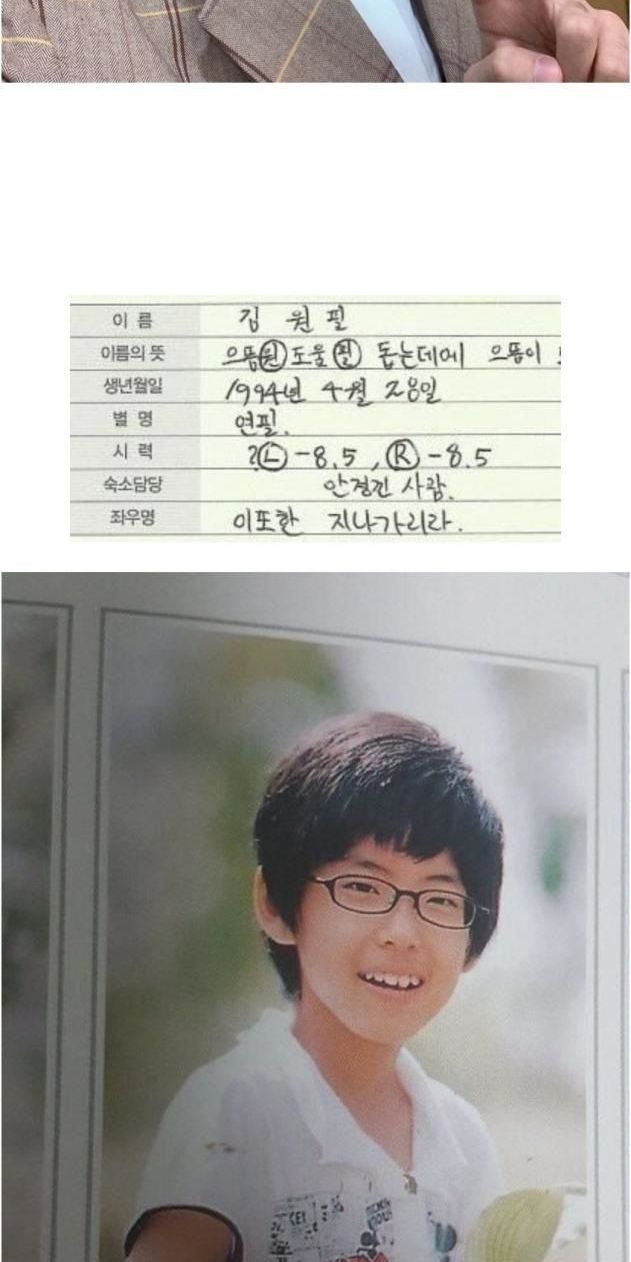 이 름 김 원 필
이름의 뜻 으뜸 원 도울 필 돕는데에 으뜸이
생년월일 1994년 4월 28일
별 명 연필.
시 력 ? L -8.5, R -8.5
숙소담당 안경낀 사람.
좌우명 이또한 지나가리라.